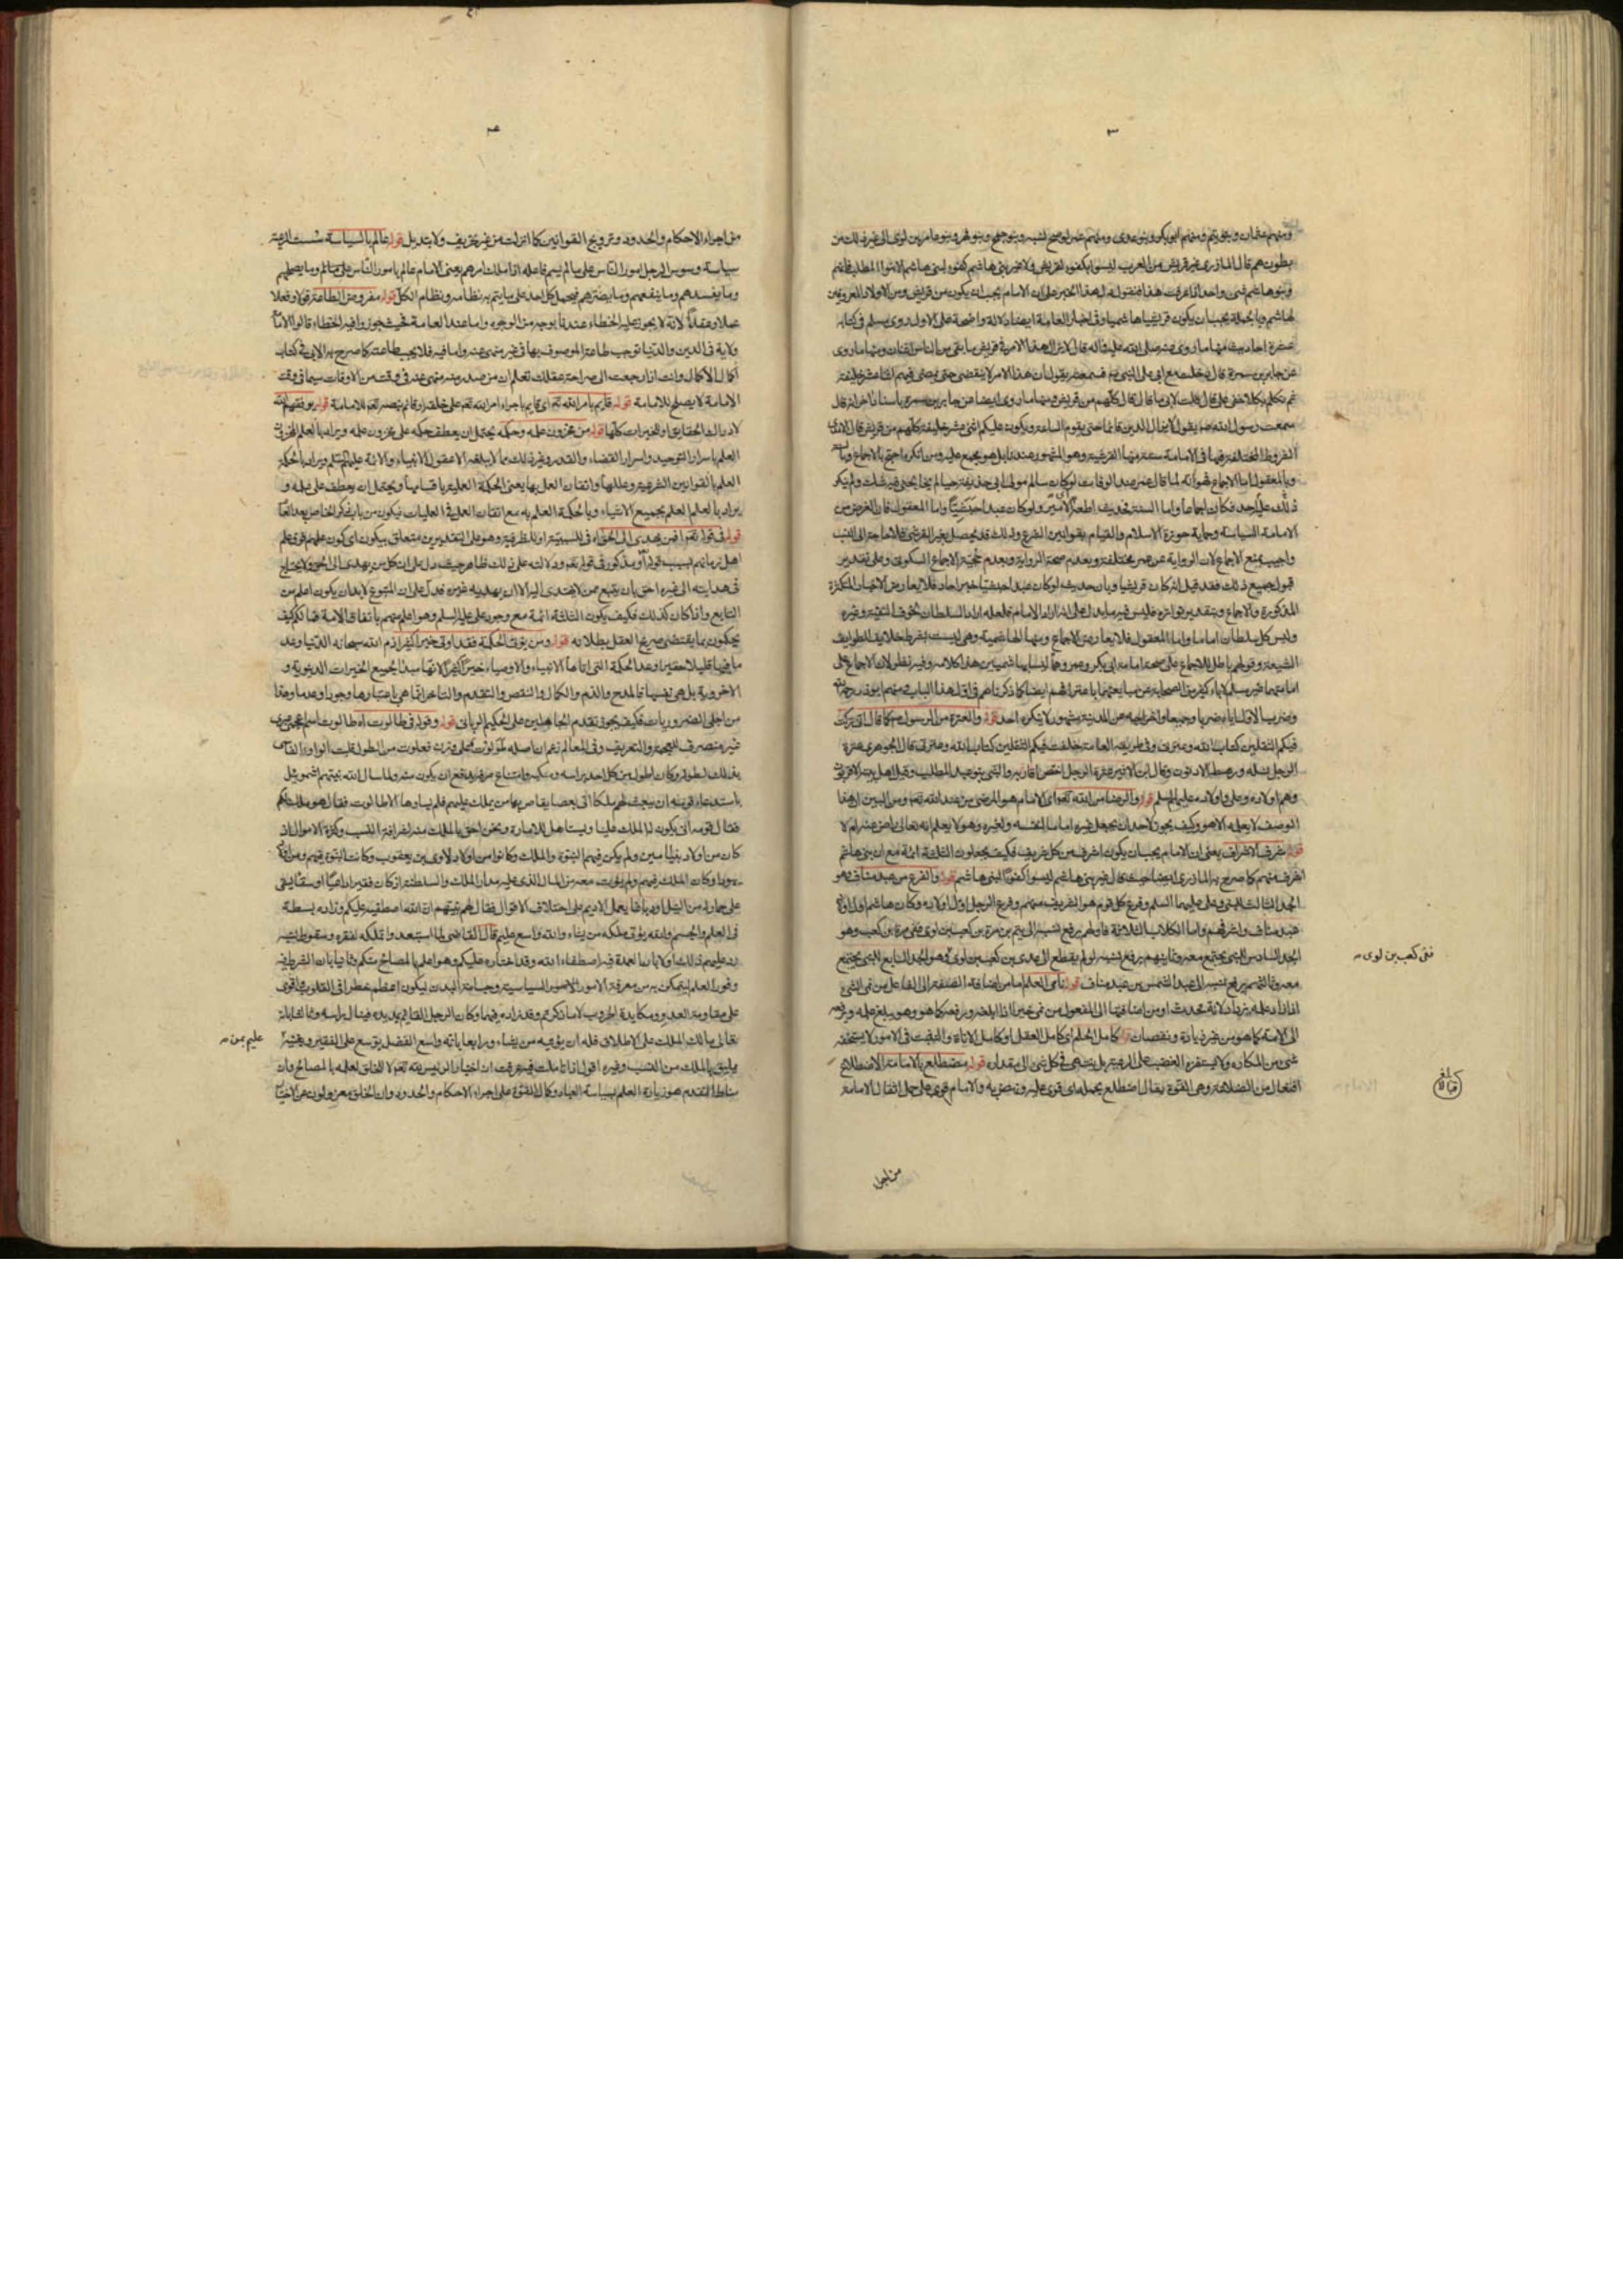 ٣
ومنهم عثمان وبنو تيم ومنهم ابو بكر وبنو عدى ومنهم عمر وبنو جمح وبنو فهر وبنو عامر بن لوى الى غير ذلك من
بطونهم قال المازرى غير قريش من العرب ليسوا بكفوء لقريش ولا غير بنى هاشم كفوء لبنى هاشم الا بنوا المطلب فانهم
وبنو هاشم شىء واحد اذا عرفت هذا فنقول دل هذا الخبر على ان الامام يجب ان يكون من قريش ومن الاولاد المعروفين
لهاشم وبالجملة يجب ان يكون قرشيا هاشميا وفى اخبار العامة ايضا دلالة واضحة على الاول روى مسلم فى كتابه
عشرة احاديث منها ما روى عنه صلى الله عليه وآله قال لا يزال هذا الامر فى قريش ما بقى من الناس اثنان ومنها ما روى
عن جابر بن سمرة قال دخلت مع ابى على النبى ص فسمعته يقول ان هذا الامر لا ينقضى حتى يمضى فيهم اثنا عشر خليفة
ثم تكلم بكلام خفى على قال قلت لابى ما قال قال كلهم من قريش ومنها ما روى ايضا عن جابر بن سمرة باسناد اخر انه قال
سمعت رسول الله ص يقول لا يزال الدين قائما حتى يقوم الساعة ويكون عليكم اثنى عشر خليفة كلهم من قريش قال الابى
الشروط المختلفة فيها فى الامامة ستة منها القرشية وهو المشهور عندنا بل هو مجمع عليه ومن انكره احتج بالاجماع وبالسنة
وبالمعقول اما الاجماع فهو انه لما قال عمر عند الوفات لو كان سالم مولى ابى حذيفة حيا لم يخالجنى فيه شك ولم ينكر
ذلك عليه احد فكان اجماعا واما السنة فحديث اطعه لامير ولو كان عبدا حبشيا واما المعقول فان الغرض من
الامامة السياسة وحماية حوزة الاسلام والقيام بقوانين الشرع وذلك قد يحصل بغير القرشى فلا حاجة الى النسب
واجيب بمنع الاجماع لان الرواية عن عمر مختلفة وبعدم صحة الرواية وبعدم حجية الاجماع السكوتى وعلى تقدير
قبول جميع ذلك فقد قيل انه كان قرشيا وبان حديث لو كان عبدا حبشيا خبر احاد فلا يعارض الاخبار المتكثرة
المذكورة والاجماع وبتقدير تواتره فليس فيه ما يدل على انه اراد الامام فلعله اراد السلطان بخوف التقية وغيره
وليس كل سلطان اماما واما المعقول فلا يعارض الاجماع ومنها الهاشمية وهى ليست بشرط خلافا لطوايف
الشيعة وقولهم باطل للاجماع على صحة امامة ابى بكر وعمر وهما ليسا بهاشميين هذا كلامه وفيه نظر لان الاجماع على
امامتهما غير مسلم لاباء كثير من الصحابة عن مبايعتهما باعترافهم ايضا كما ذكرناهم فى اول هذا الباب منهم ابوذر رحمه الله
وضربه الاباء ضربا وجيعا واخراجه عن المدينة مشهور لا ينكره احد قوله والعترة من الرسول ص كما قال انى تركت
فيكم الثقلين كتاب الله وعترتى وفى طريقه العامة خلفت فيكم الثقلين كتاب الله وعترتى قال الجوهرى عترة
الرجل نسله ورهطه الادنون وقال ابن الاثير عترة الرجل اخص اقاربه والنبى بنو عبد المطلب وقيل اهل بيته الاقربون
وهم اولاده وعلى واولاده عليهم السلم قوله والرضا من الله تعالى اى الامام هو المرضى من عند الله تعالى ومن البين ان هذا
الوصف لا يعلمه الا هو وكيف يجوز لاحد ان يجعل غيره اماما لنفسه ولغيره وهو لا يعلم انه تعالى راض عنه ام لا
قوله شرف الاشراف يعنى ان الامام يجب ان يكون اشرف من كل شريف فكيف يجعلون الثلاثة ائمة مع ان بنى هاشم
اشرف منهم كما صرح به المازرى ايضا حيث قال غير بنى هاشم ليسوا كفوا لبنى هاشم قوله والفرع من عبد مناف وهو
الجد الثالث للنبى وعلى عليهما السلم وفرع كل قوم هو الشريف منهم وفرع الرجل اول اولاده وكان هاشم اول اولاد
عبد مناف واشرفهم واما الثلاثة فاولهم يرفع نسبه الى تيم بن مرة بن كعب بن لوى فمن مرة بن كعب وهو
الجد السادس للنبى يجتمع معه وثانيهم يرفع نسبه الى عدى بن كعب بن لوى وهو الجد السابع للنبى يجتمع
معه وثالثهم يرفع نسبه الى عبد الشمس بن عبد مناف قوله نامى العلم اما من اضافة الصفة الى الفاعل من نمى الشىء
اذا زاد علمه يزداد لانه محدث او من اضافتها الى المفعول من نمى خبرا اذا بلغه ورفعه كما هو وهو مبلغ علمه ويرفعه
الى الامة كما هو من غير زيادة ونقصان قوله كامل الحلم اى كامل العقل او كامل الاناة والتثبت فى الامور لا يستخفه
شىء من المكاره ولا يستفزه الغضب على الرعية بل ينتهى فى كل شىء الى مقداره قوله مضطلع بالامامة الاضطلاع
افتعال من الضلاعة وهى القوة يقال اضطلع بحمله اى قوى عليه ونهض به والامام قوى على حمل اثقال الامامة
فمن كعب بن لوى
بلغ قبالا
من اجل
٤
من اجراء الاحكام والحدود وترويج القوانين كما انزلت من غير تحريف ولا تبديل قوله عالم بالسياسة سست الرعية
سياسة وسوس الرجل امور الناس على ما لم يسم فاعله اذا ملك امرهم يعنى الامام عالم بامور الناس على ما لهم وما يصلحهم
وما يفسدهم وما ينفعهم وما يضرهم فيحمل كل احد على ما يتم به نظامه ونظام الكل قوله مفروض الطاعة قولا وفعلا
عملا وعقلا لانه لا يجوز عليه الخطاء عندنا بوجه من الوجوه واما عند العامة فحيث جوزوا فيه الخطاء قالوا الامامة
ولاية فى الدين والدنيا توجب طاعة الموصوف بها فى غير منهى عنه واما فيه فلا يجب طاعته كما صرح به الابى فى كتاب
اكمال الاكمال وانت اذا رجعت الى صراحة عقلك تعلم ان من صدر منه منهى عنه فى وقت من الاوقات سيما فى وقت
الامامة لا يصلح للامامة قوله قايم بامر الله تعالى اى قايم باجراء امر الله تعالى على خلقه او قائم بنصبه تعالى للامامة قوله يوفقهم الله
لادراك الحقايق والخيرات كلها قوله من مخزون علمه وحكمه يحتمل ان يعطف حكمه على مخزون علمه ويراد بالعلم المخزون
العلم باسرار التوحيد واسرار القضاء والقدر وغير ذلك مما لا يبلغه الا عقول الانبياء والائمة عليهم السلم ويراد بالحكمة
العلم بالقوانين الشرعية وعللها واتقان العمل بها يعنى الحكمة العملية باقسامها ويحتمل ان يعطف على علمه و
يراد بالعلم العلم بجميع الاشياء وبالحكمة العلم به مع اتقان العمل فى العمليات فيكون من باب ذكر الخاص بعد العام
قوله فى قوله تعالى افمن يهدى الى الحق فى للسببية او للظرفية وهو على التقديرين متعلق بيكون اى يكون علمهم فوق علم
اهل زمانهم بسبب قوله او مذكور فى قوله تعالى ودلالته على ذلك ظاهر حيث دل على ان كل من يهدى الى الحق ولا يحتاج
فى هدايته الى غيره احق بان يتبع ممن لا يهتدى اليه الا ان يهديه غيره فدل على ان المتبوع لابد ان يكون اعلم من
التابع واذا كان كذلك فكيف يكون الثلاثة ائمة مع وجود على عليه السلم وهو اعلم منهم باتفاق الامة فما لكم كيف
تحكمون بما يقتضى صريح العقل بطلانه قوله ومن يؤت الحكمة فقد اوتى خيرا كثيرا ذم الله سبحانه الدنيا وعد
ما فيها قليلا حقيرا وعد الحكمة التى اتاها الانبياء والاوصياء خيرا كثيرا لانها مبدأ لجميع الخيرات الدنيوية و
الاخروية بل هى نفسها فالمدح والذم والكمال والنقص والتقدم والتاخر انما هى باعتبارها وجودا وعدما وهذا
من اجلى الضروريات فكيف يجوز تقدم الجاهلين على الحكيم الربانى قوله وقوله فى طالوت اه طالوت اسم عجمى عبرى
غير منصرف للعجمة والتعريف وفى المعالم زعم ان اصله طولوت على وزن فعلوت من الطول قلبت الواو الفا سمى
بذلك لطوله وكان اطول من كل احد براسه ومنكبيه وامتناع صرفه يدفع ان يكون منه ولما سال الله نبيهم اشمويل
باستدعاء قومه ان يبعث لهم ملكا اتى بعصا يقاس بها من يملك عليهم فلم يساوها الا طالوت فقال هو ملككم
فقال قومه انى يكون له الملك علينا وليستاهل للامارة ونحن احق بالملك منه لشرافة النسب وكثرة الاموال اذ
كان من اولاد بنيامين ولم يكن فيهم النبوة والملك وكانوا من اولاد لاوى بن يعقوب وكانت النبوة فيهم ومن اولاد
يهودا وكان الملك فيهم ولم يؤت معه من المال الذى عليه مدار الملك والسلطنة اذ كان فقيرا راعيا او سقايا يسقى
على حماره من النيل او دباغا يعمل الاديم على اختلاف الاقوال فقال لهم نبيهم ان الله اصطفيه عليكم وزاده بسطة
فى العلم والجسم والله يؤتى ملكه من يشاء والله واسع عليم قال القاضى لما استبعدوا تملكه لفقره وسقوط نسبه
رد عليهم ذلك اولا بان العمدة فيه اصطفاء الله وقد اختاره عليكم وهو اعلم بالمصالح منكم وثانيا بان الشرط فيه
وفور العلم ليتمكن به من معرفة الامور السياسية وجسامة البدن ليكون اعظم خطرا فى القلوب واقوى
على مقاومة العدو ومكايدة الحروب لا ما ذكرتم وقد زاده فيهما وكان الرجل القايم يمد يده فينال راسه وثالثا بانه
تعالى مالك الملك على الاطلاق فله ان يؤتيه من يشاء ورابعا بانه واسع الفضل يوسع على الفقير ويغنيه
يليق بالملك من النسب وغيره اقول اذا تاملت فيه عرفت ان اختيار الرئيس لله تعالى لا للخلق لعلمه بالمصالح وان
مناط التقدم هو زيادة العلم بسياسة العباد وكمال القوة على اجراء الاحكام والحدود وان الخلق معزولون عن الاختيار
عليم بمن